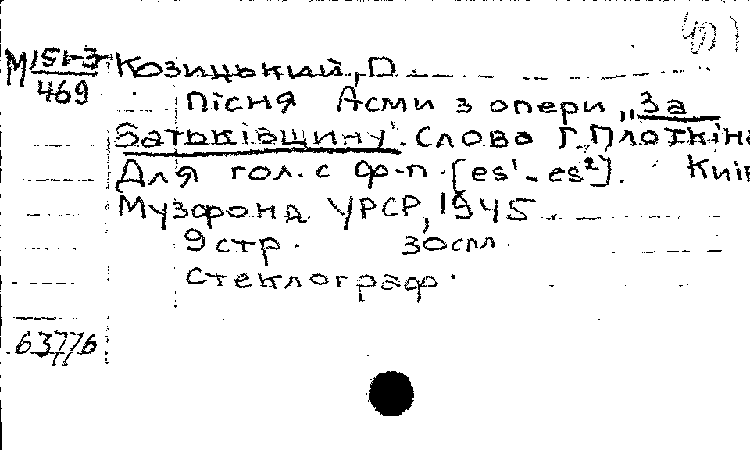 М 151-3
469
Козицький, П.
Пісня Асми з опери „За
Батьківщину". Слова Г. Плоткіна
Для гол. с ф-п. [es¹-es²]. Київ
Музфонд УРСР, 1945.
9 стр. 30спл
стеклограф.
63776